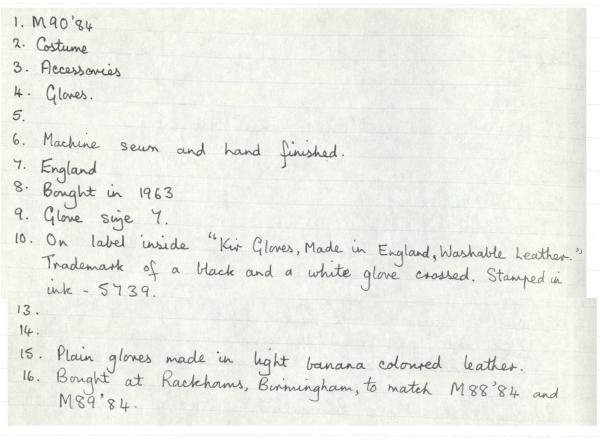 1. M90'84
2. Costume
3. Accessories
4. Gloves.
5.
6. Machine sewn and hand finished.
7. England
8. Bought in 1963
9. Glove size 7.
10. On label inside "Kir Gloves, Made in England, Washable Leather."
Trademark of a black and a white glove crossed. Stamped in
ink - 5739.
13.
14.
15. Plain gloves made in light banana coloured leather.
16. Bought at Rackhams, Birmingham, to match M88'84 and
M89'84.